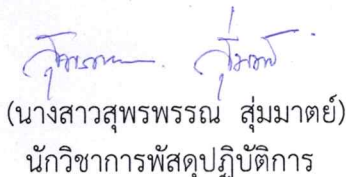 (นางสาวสุพรพรรณ สุ่มมาตย์)
นักวิชาการพัสดุปฏิบัติการ